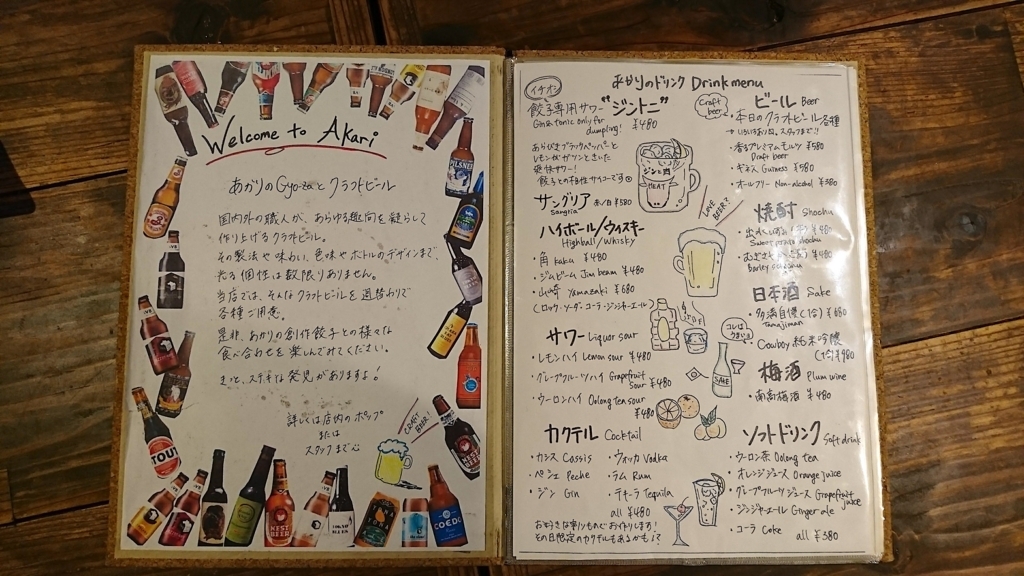 Welcome to Akari
あかりのGyo-zaとクラフトビール
国内外の職人が、あらゆる趣向を凝らして
作り上げるクラフトビール。
その製法や味わい、色味やボトルのデザインまで
光る個性は数限りありません。
当店では、そんなクラフトビールを週替わりで
各種ご用意。
是非、あかりの創作餃子との様々な
食べ合わせを楽しんでみてください。
きっと、ステキな発見がありますよ!
詳しくは店内のポップ
または
スタッフまで
CRAFT BEER!
PILSNER
STOUT
NEST BEER
COEDO
あかりのドリンク Drink menu
イチオシ
餃子専用サワー "ジントニ"
Gin & tonic only for dumpling! ¥480
あらびきブラックペッパーと
レモンがガツンときいた
爽快サワー!
餃子との相性サイコーです
MEAT
サングリア 赤/白 ¥580
Sangria
ハイボール/ウィスキー
Highball/Whisky
・角 kaku ¥480
・ジムビーム Jim beam ¥480
・山崎 Yamazaki ¥680
(ロック・ソーダ・コーラ・ジンジャーエール)
サワー Liquor sour
・レモンハイ Lemon sour ¥480
・グレープフルーツハイ Grapefruit sour ¥480
・ウーロンハイ Oolong tea sour ¥480
カクテル Cocktail
・カシス Cassis
・ペシェ Peche
・ジン Gin
・ウォッカ Vodka
・ラム Rum
・テキーラ Tequila
all ¥480
お好きな割りものでお作りします!
その日限定のカクテルもあるかも!?
Craft beer
ビール Beer
・本日のクラフトビール各種
・香るプレミアムモルツ ¥580
Draft beer
・ギネス Guiness ¥580
・オールフリー Non-alcohol ¥380
LOVE BEER?
焼酎 Shochu
¥480
Sweet potato shochu
¥480
Barley shochu
日本酒 Sake
・多満自慢(1合) ¥680
Tamajiman
コレはうまい!
・Cowboy 純米吟醸
(1合) ¥980
SAKE
梅酒 Plum wine
・南高梅酒 ¥480
ソフトドリンク Soft drink
・ウーロン茶 Oolong tea
・オレンジジュース Orange juice
・グレープフルーツジュース Grapefruit juice
・ジンジャエール Ginger ale
・コーラ Coke all ¥380